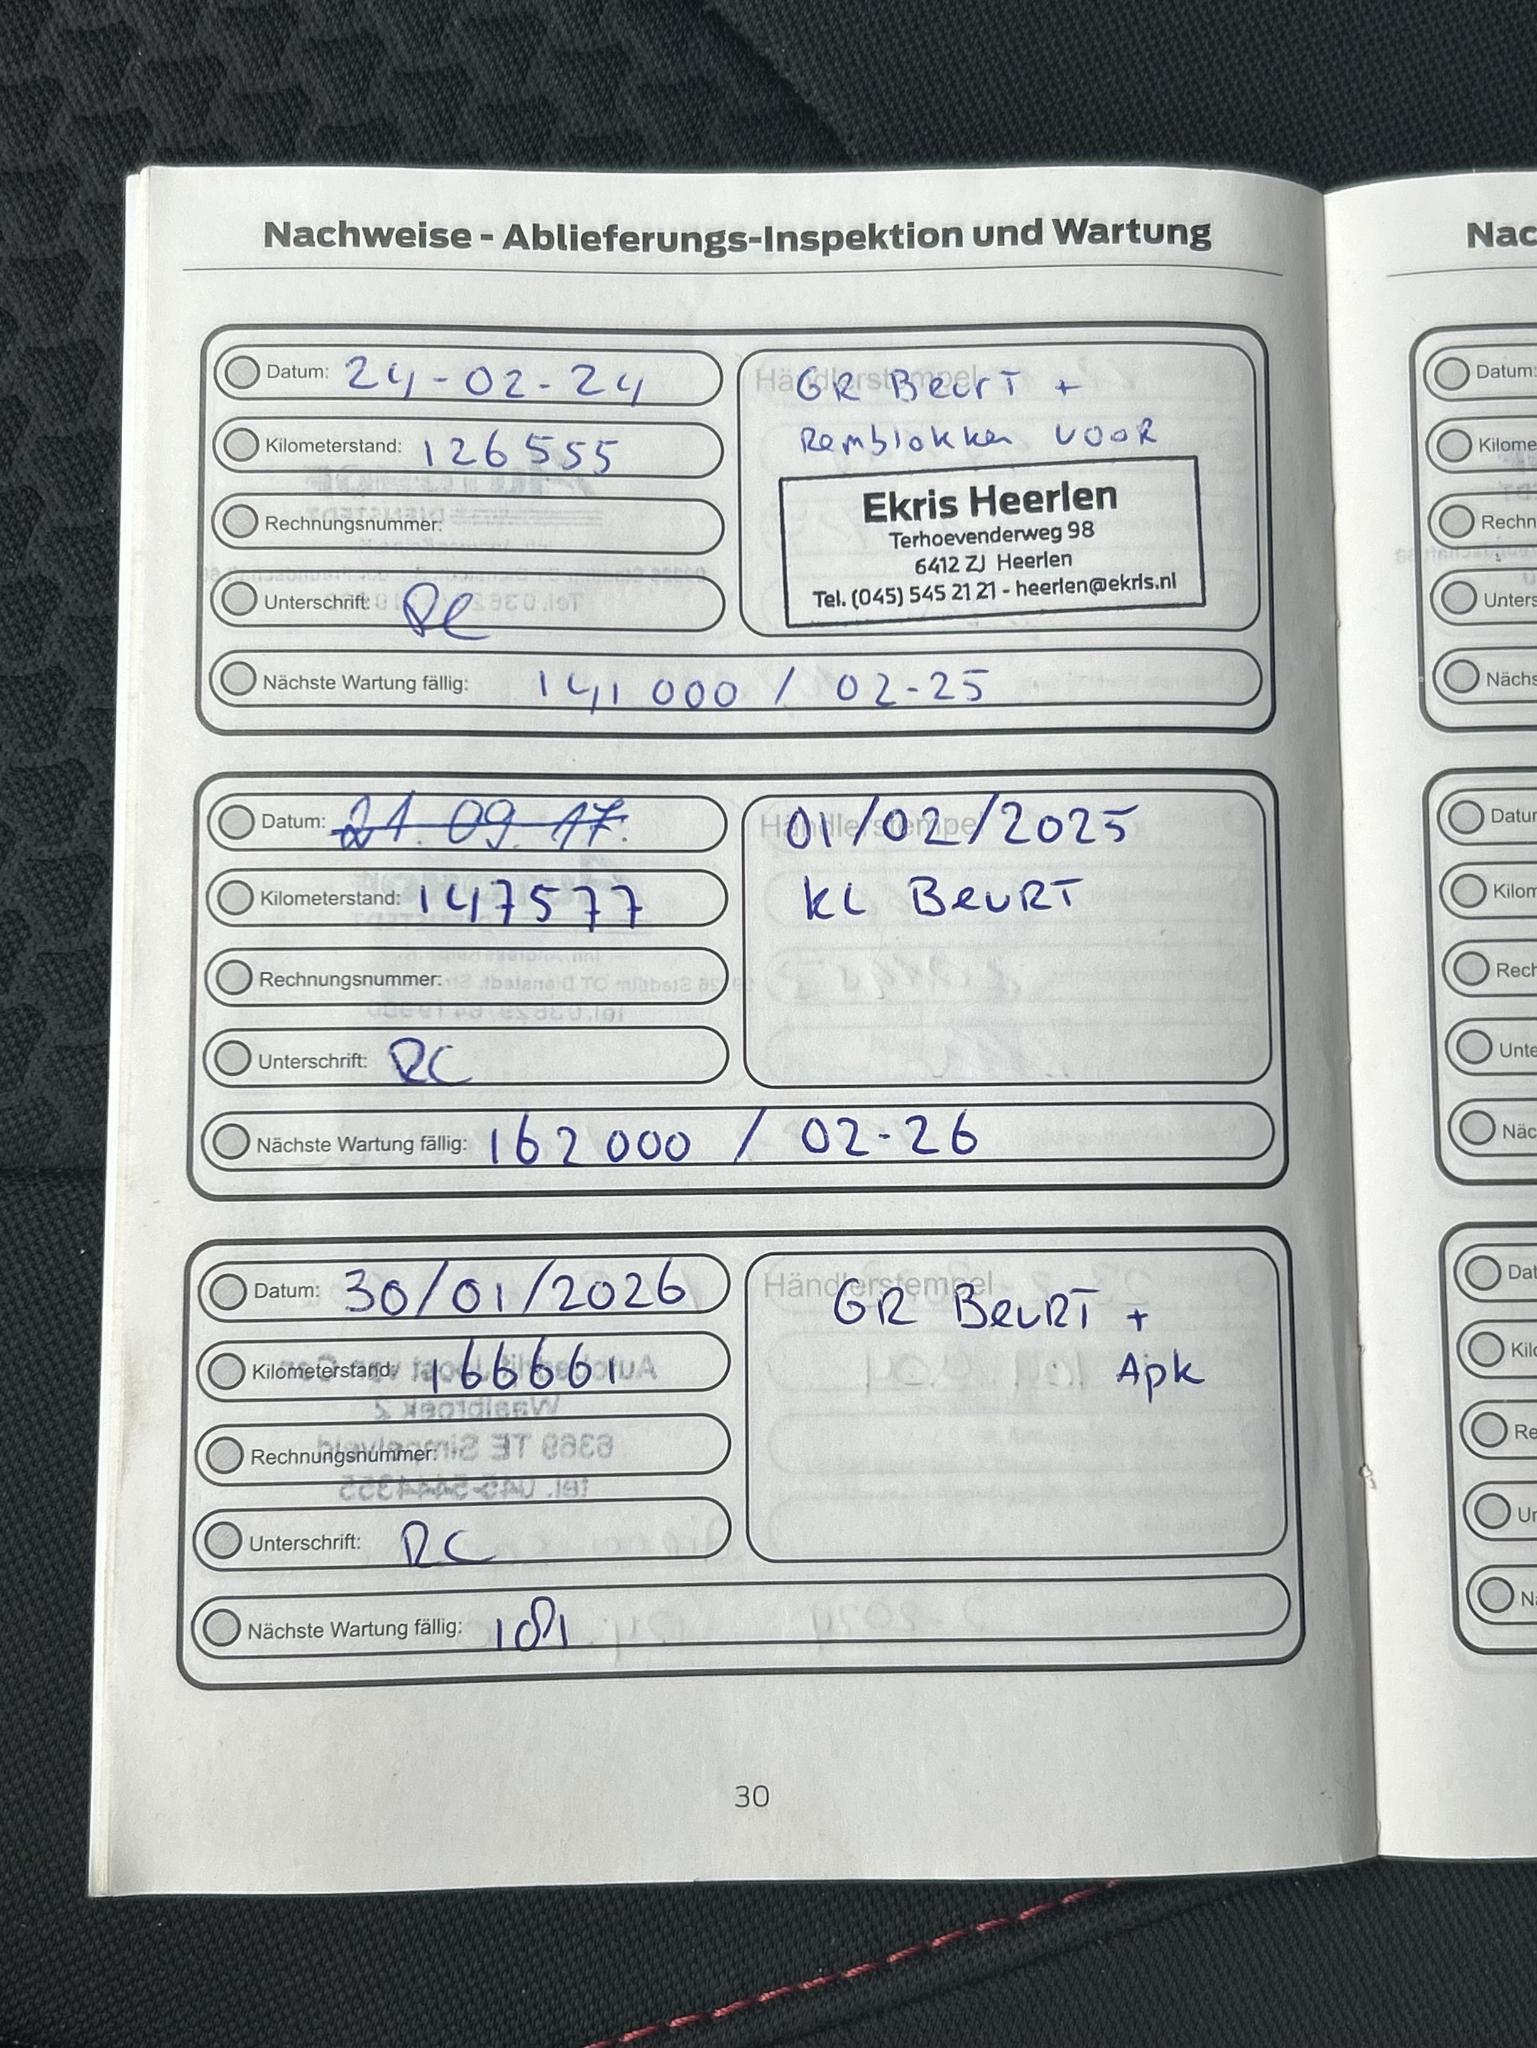 Nachweise - Ablieferungs-Inspektion und Wartung
Datum: 24-02-24
Kilometerstand: 126555
Rechnungsnummer:
Unterschrift: RC
Nächste Wartung fällig: 141 000 / 02-25
Händlerstempel
GR Beurt +
Remblokken voor
Ekris Heerlen
Terhoevenderweg 98
6412 ZJ Heerlen
Tel. (045) 545 21 21 - heerlen@ekris.nl
Datum: 21.09.17.
Kilometerstand: 147577
Rechnungsnummer:
Unterschrift: RC
Nächste Wartung fällig: 162 000 / 02-26
Händlerstempel
01/02/2025
KL BeURT
Datum: 30/01/2026
Kilometerstand: 166661
Rechnungsnummer:
Unterschrift: RC
Nächste Wartung fällig: 181
Händlerstempel
GR BeURT +
Apk
30
Nac
Datum:
Kilome
Rechn
Unters
Nächs
Datum
Kilom
Rech
Unte
Näc
Dat
Kilo
Re
Un
Nä